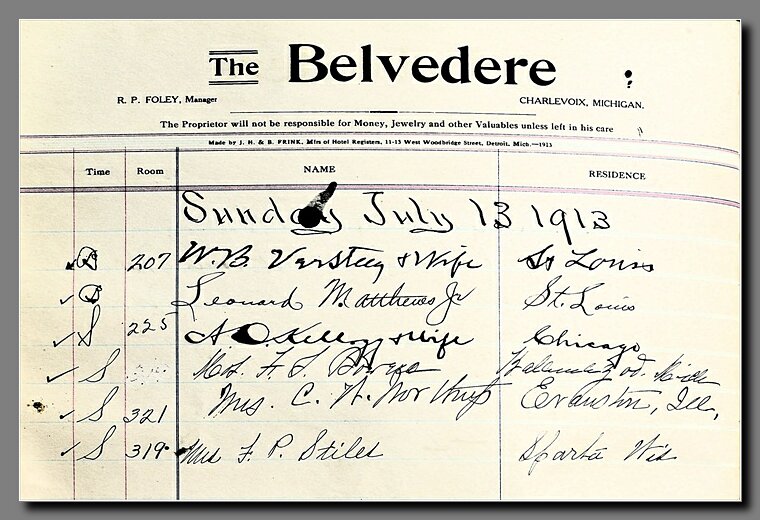 The Belvedere
R. P. FOLEY, Manager CHARLEVOIX, MICHIGAN.
The Proprietor will not be responsible for Money, Jewelry and other Valuables unless left in his care
Made by J. H. & B. FRINK, Mfrs of Hotel Registers, 11-13 West Woodbridge Street, Detroit, Mich.—1913
Time Room NAME RESIDENCE
Sunday July 13 1913
B 207 W. B. Versteeg & Wife St Louis
B Leonard Matthews Jr St. Louis
S 225 A O Kellogg & wife Chicago
S Mrs. F. S. Bowen
S 321 Mrs. C. H. Northup Evanston, Ill,
S 319 Mrs F. P. Stiles Sparta Wis